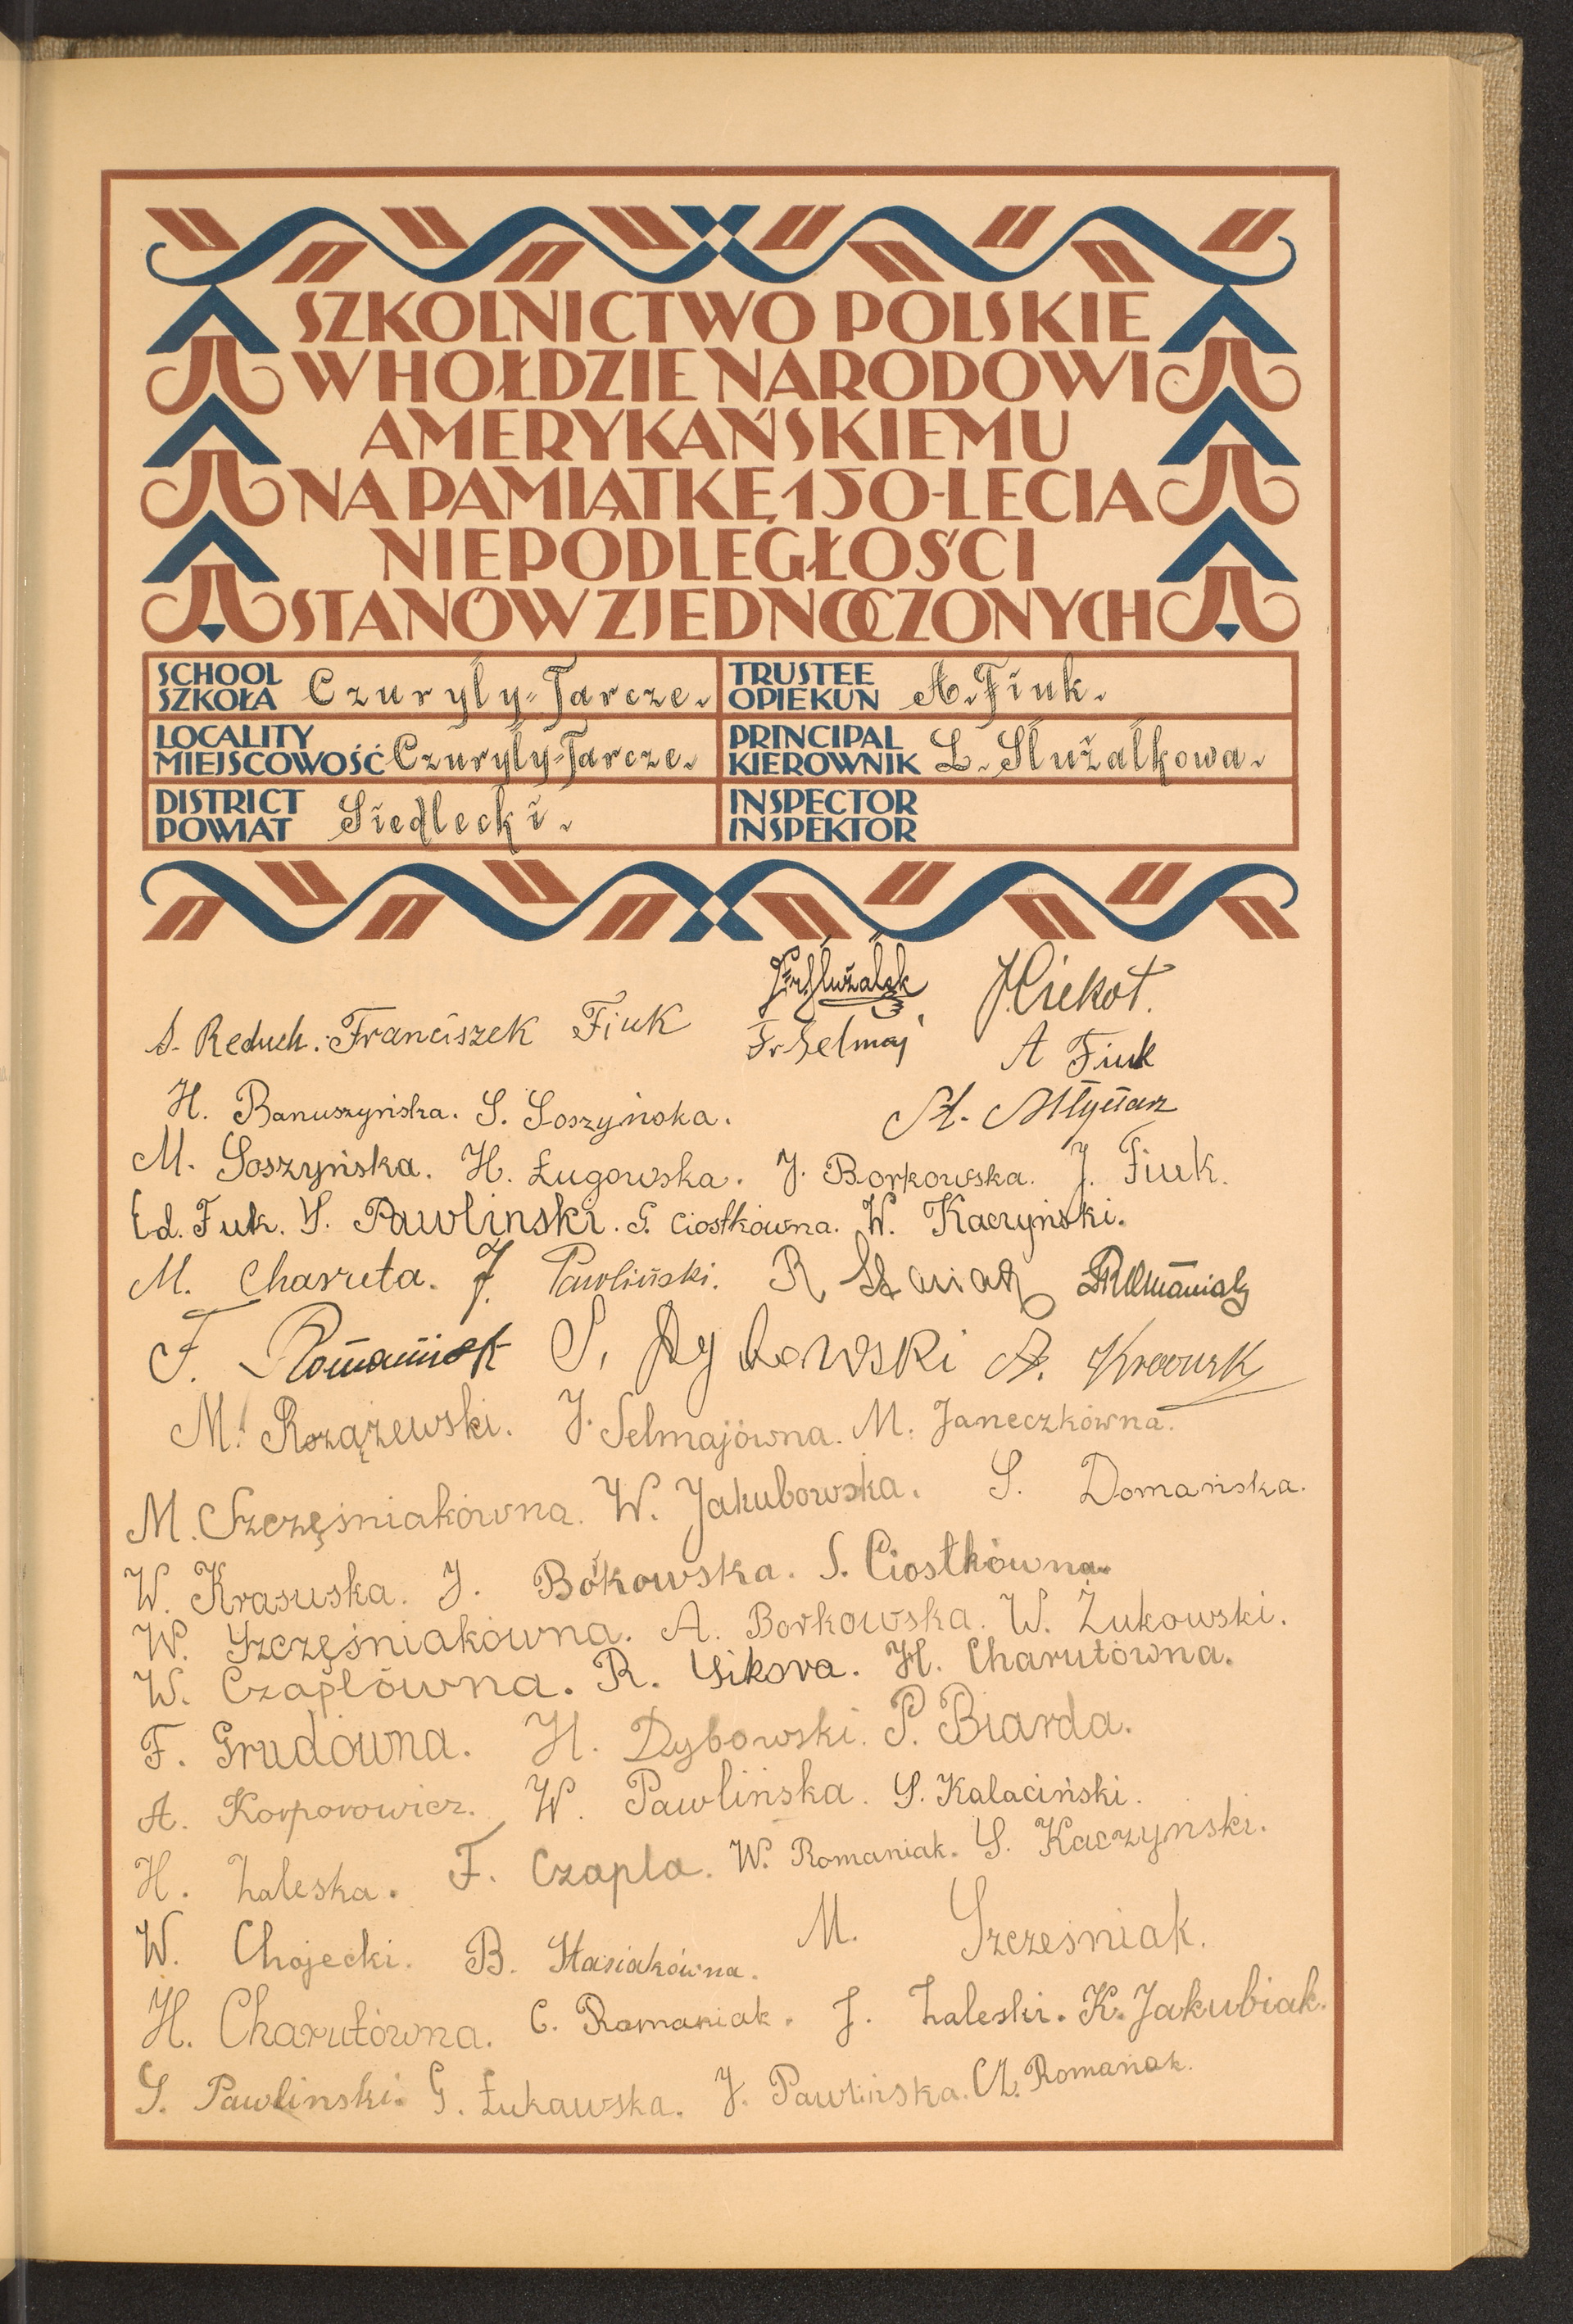 SZKOLNICTWO POLSKIE
W HOŁDZIE NARODOWI
AMERYKAŃSKIEMU
NA PAMIĄTKĘ 150-LECIA
NIEPODLEGŁOŚCI
STANÓW ZJEDNOCZONYCH
SCHOOL
SZKOŁA Czuryly-Tarcze.
TRUSTEE
OPIEKUN A. Fiuk.
LOCALITY
MIEJSCOWOŚĆ Czuryly-Tarcze.
PRINCIPAL
KIEROWNIK L. Służałkowa.
DISTRICT
POWIAT Siedlecki.
INSPECTOR
INSPEKTOR
Fr. Służałek J. Ciekot.
S. Reduch. Franciszek Fiuk Fr Selmaj A Fiuk
H. Banuszyńska. S. Soszyńska. St. Młynarz
M. Soszyńska. H. Ługowska. J. Borkowska. J. Fiuk.
Ed. Fuk. S. Pawlinski. G. Ciostkówna. W. Kaczyński.
M. Charuta. J. Pawliński. R
F. Romaniak S. Dybowski A.
M. Rozążewski. J. Selmajówna. M. Janeczkówna.
M. Szczęśniakówna. W. Jakubowska. S. Domańska.
W. Krasuska. J. Borkowska. S. Ciostkówna.
W. Szczęśniakówna. A. Borkowska. W. Żukowski.
W. Czaplówna. R. Siksra. H. Charutówna.
F. Grudówna. H. Dybowski. P. Biarda.
A. Korporowicz. W. Pawlińska. S. Kalaciński.
H. Zaleska. F. Czapla. W. Romaniak. S. Kaczynski.
W. Chojecki. B. Stasiakówna. M. Szcześniak.
H. Charutówna. C. Romaniak. J. Zaleski. K. Jakubiak.
S. Pawlinski. G. Łukawska. J. Pawlińska. Cz. Romaniak.